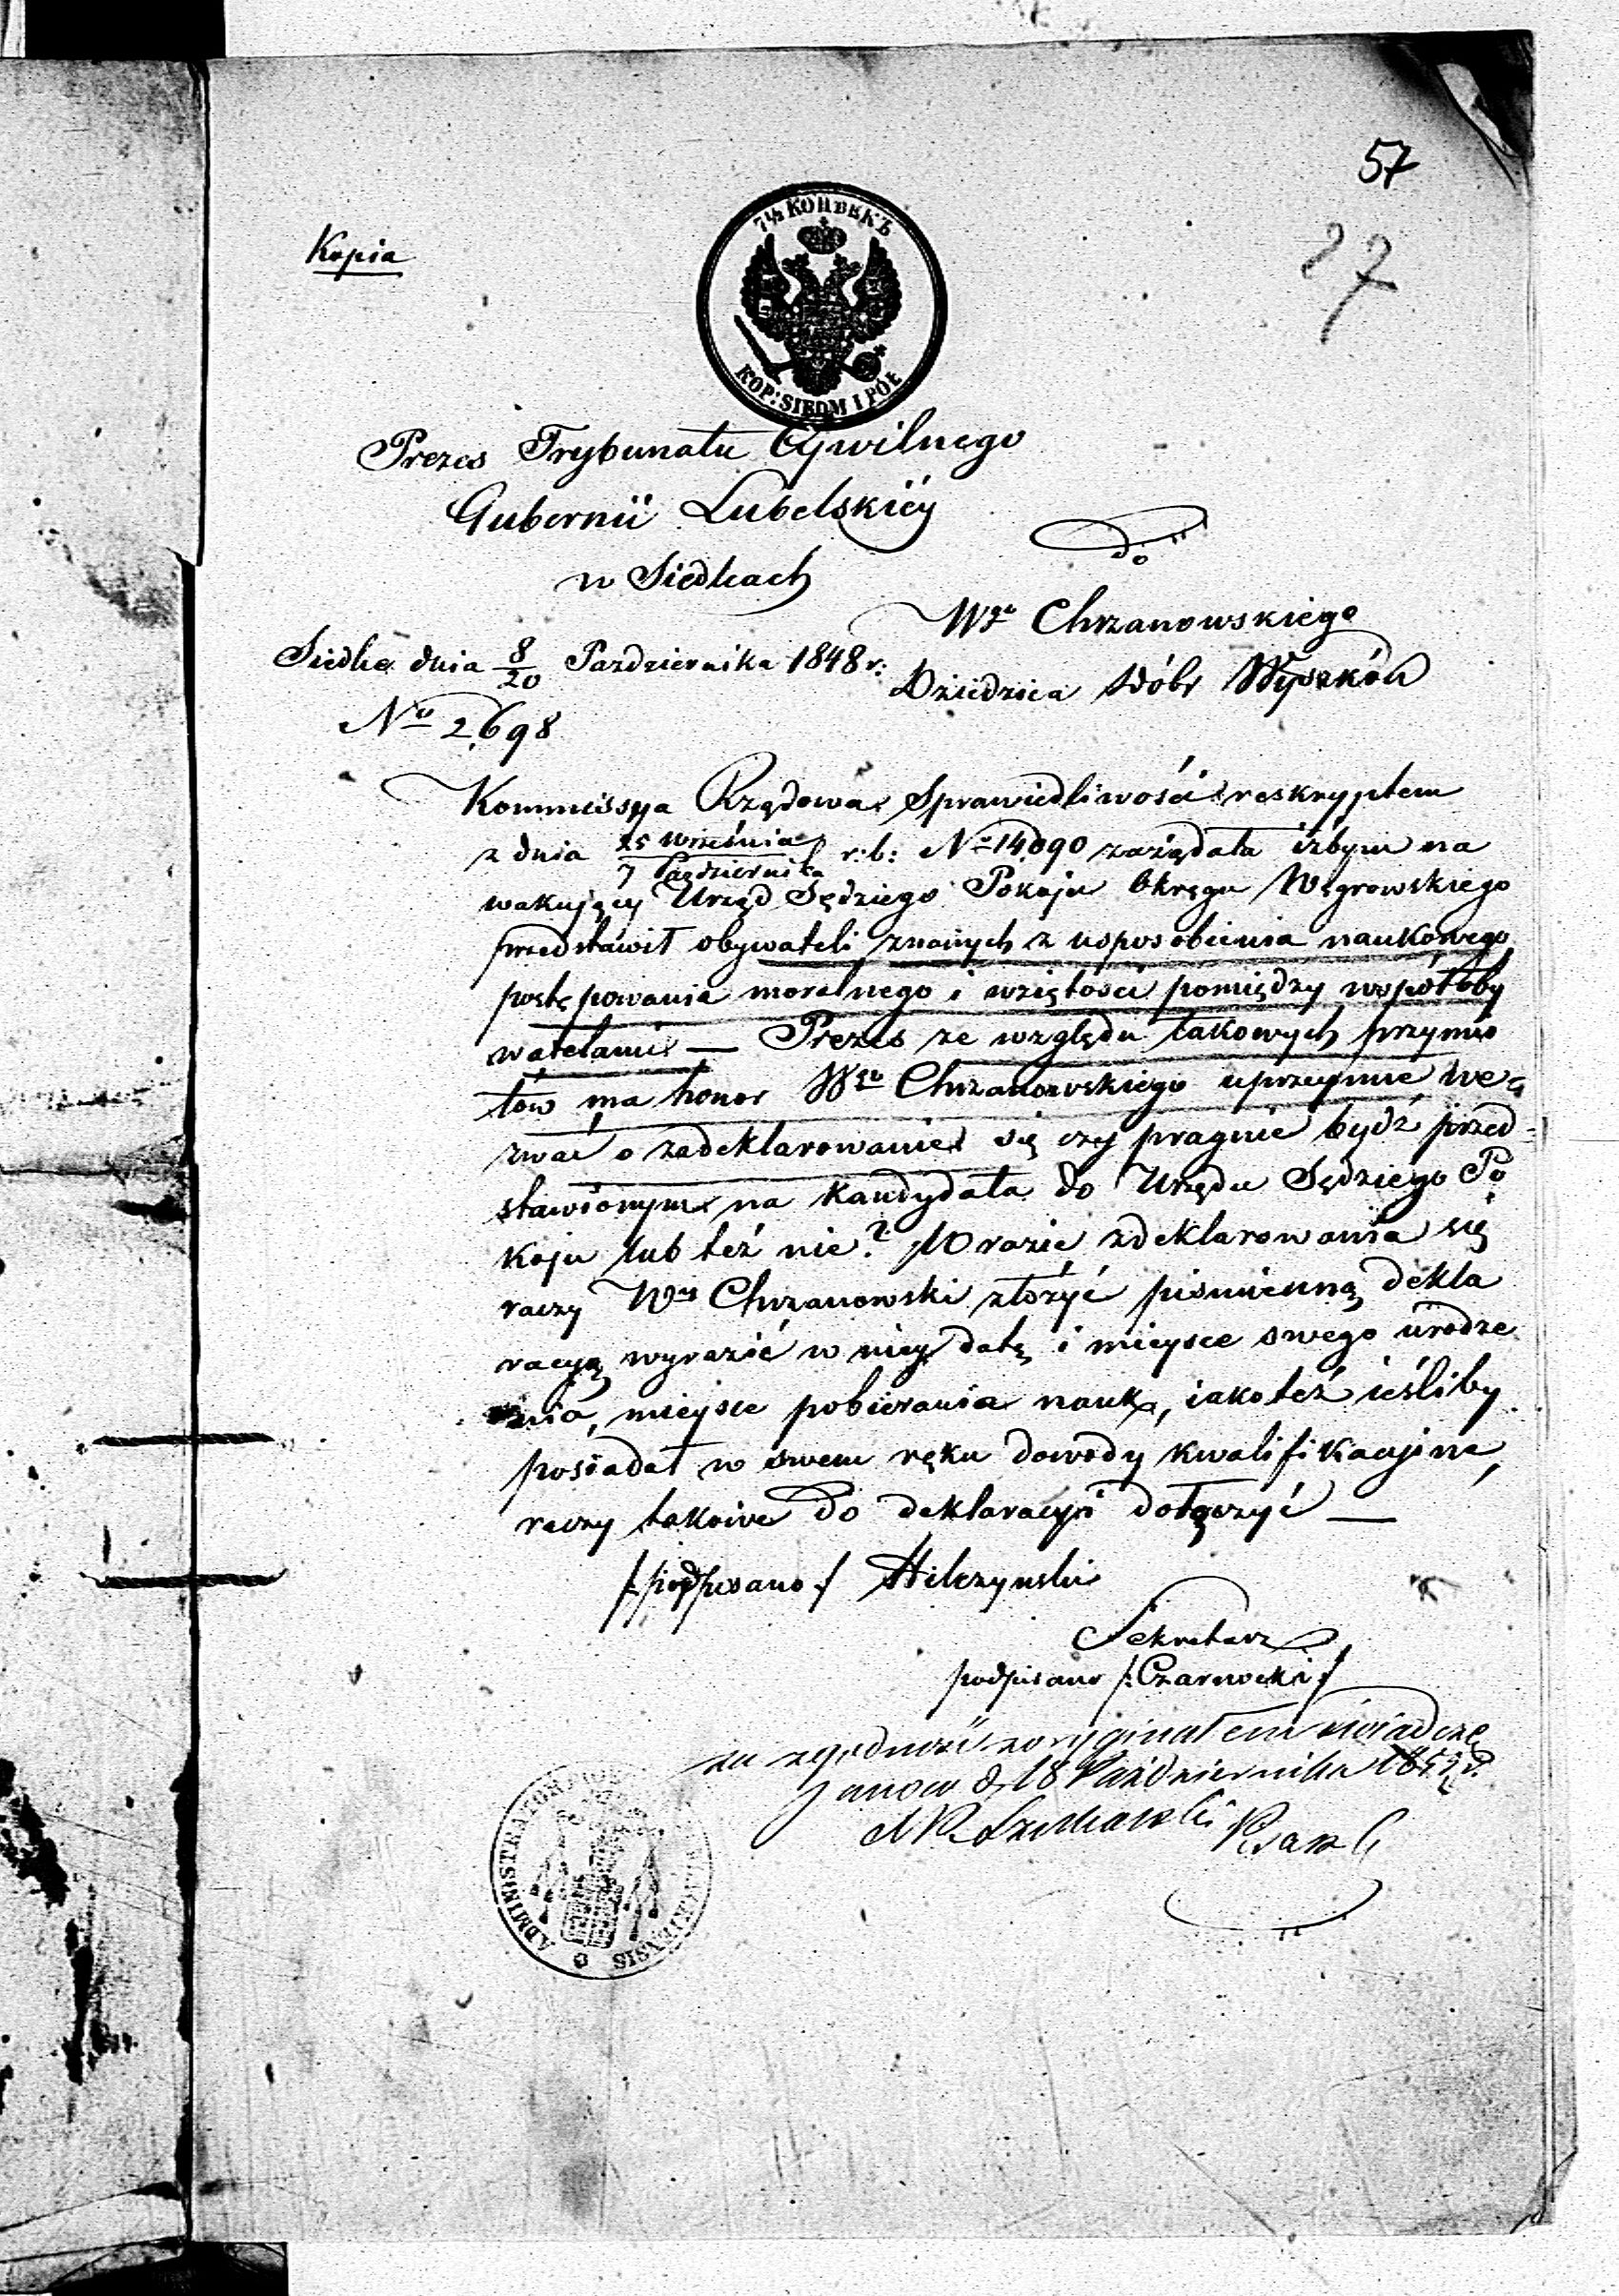 57
77
Kopia
7½ КОПѢЕКЪ
KOP: SIEDM I PÓŁ
Prezes Trybunału Cywilnego
Gubernii Lubelskiéy
w Siedlcach
do
Wgo Chrzanowskiego
Siedlce dnia 8/20 Pazdziernika 1848 r:
Dziedzica dóbr Wyszków
No 2,698
Kommissya Rządowa Sprawiedliwości reskryptem
z dnia 25 Września / 7 Pazdziernika r: b: No 14,090 zażądała iżbym na
wakujący Urząd Sędziego Pokoju Okręgu Węgrowskiego
przedstawił obywateli znanych z usposobienia naukowego
postępowania moralnego i wziętości pomiędzy współoby
watelami — Prezes ze względu takowych przymio
tów ma honor Wgo Chrzanowskiego uprzeymie we
zwać o zadeklarowanie się czy pragnie bydź przed-
stawionym na kandydata do Urzędu Sędziego Po
koju lub też nie? W razie zdeklarowania się
raczy Wny Chrzanowski złożyć piśmienną dekla
racyą wyrazić w niey datę i mieysce swego urodze
nia, mieysce pobierania nauk, iakoteż ieśliby
posiadał w swem ręku dowody kwalifikacyjne,
raczy takowe do deklaracyi dołączyć —
/:podpisano:/ Hilczynski
Sekretarz
podpisano /:Czarnocki:/
za zgodność z oryginałem świadczę
Janow d. 18 Październiku
ADMINISTRATOR